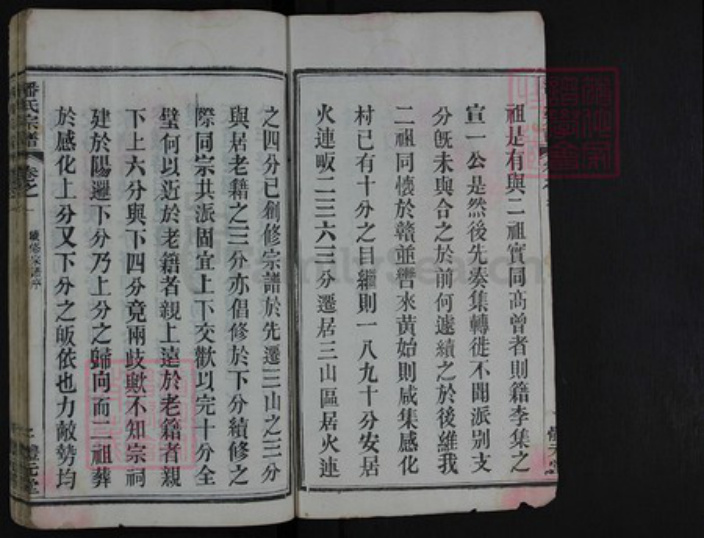 祖是有與二祖實同高曾者則籍李集之
宣一公是然後先奏集轉徙不聞派别支
分既未與合之於前何遽續之於後維我
二祖同懷於贛並轡來黄始則咸集感化
村已有十分之目繼則一八九十分安居
火連畈二三六三分遷居三山區居火連
之四分已創修宗譜於先遷三山之三分
與居老籍之三分亦倡修於下分續修之
際同宗共派固宜上下交歡以完十分全
璧何以近於老籍者親上遠於老籍者親
下上六分與下四分竟兩歧歟不知宗祠
建於陽邏下分乃上分之歸向而二祖葬
於感化上分又下分之皈依也力敵勢均
潘氏宗譜 卷之一
宗譜序
二 體元堂
FamilySearch